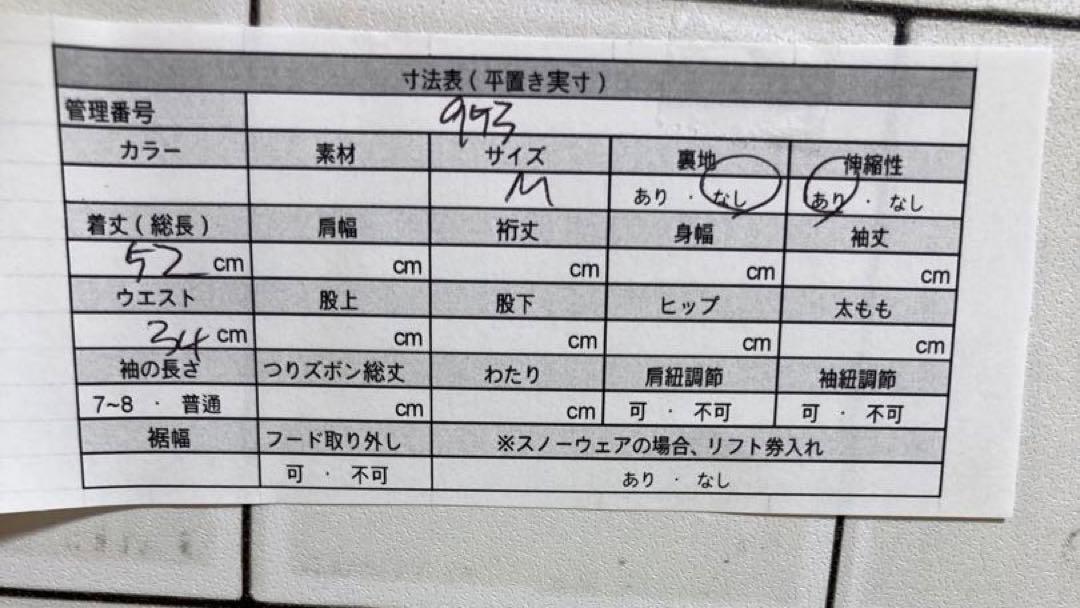 寸法表(平置き実寸)
管理番号 993
カラー 素材 サイズ 裏地 伸縮性
M あり・なし あり・なし
着丈(総長) 肩幅 裄丈 身幅 袖丈
52 cm cm cm cm cm
ウエスト 股上 股下 ヒップ 太もも
34 cm cm cm cm cm
袖の長さ つりズボン総丈 わたり 肩紐調節 袖紐調節
7~8・普通 cm cm 可・不可 可・不可
裾幅 フード取り外し ※スノーウェアの場合、リフト券入れ
可・不可 あり・なし